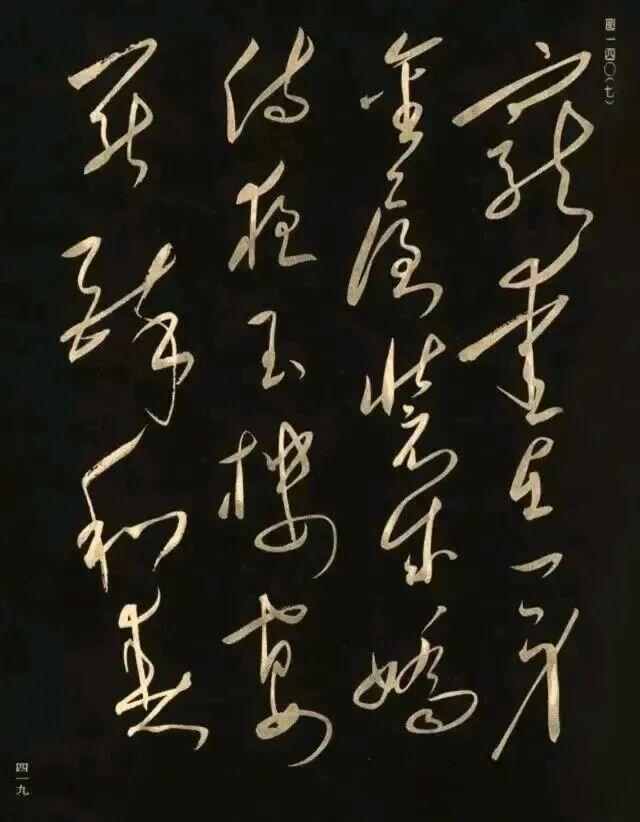 圖一四〇（七）
寵愛在一身
金屋妝成嬌
侍夜玉樓宴
罷醉和春
四一九